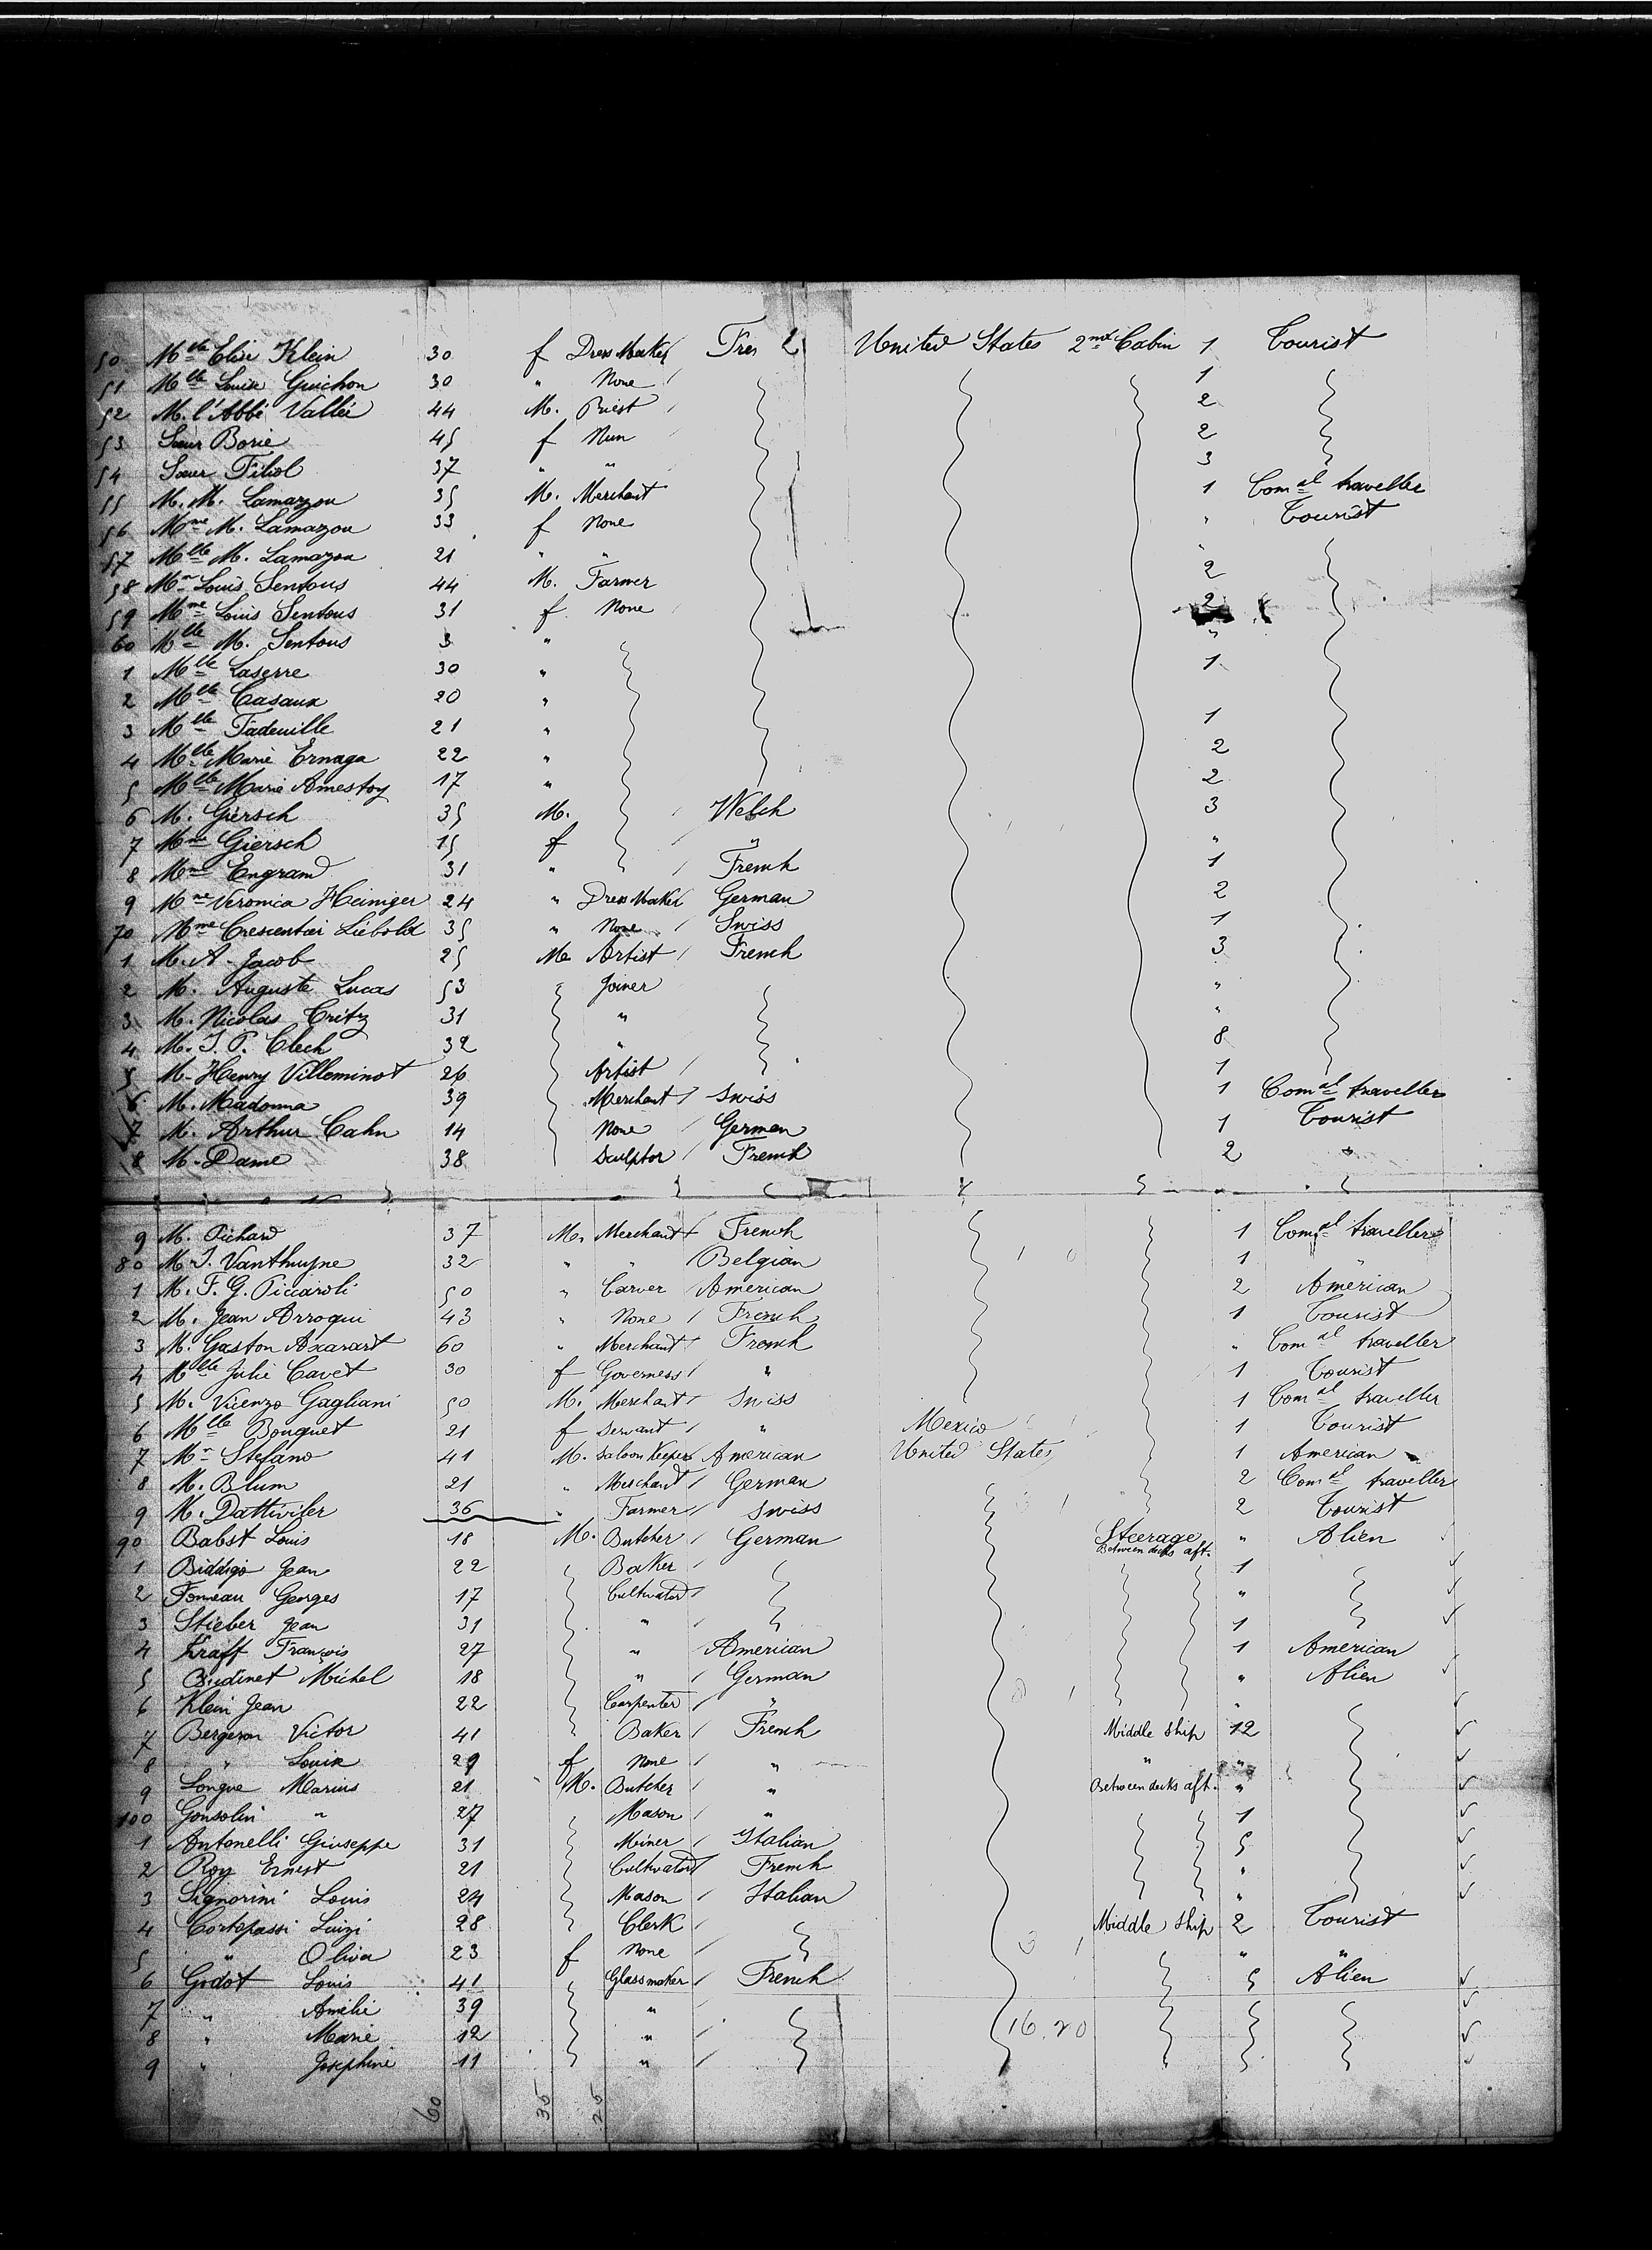 50 Mlle Elise Klein 30 f Dress Maker United States 2nd Cabin 1 Tourist
51 Mlle Louise Guichon 30 " None 1
52 M. l'Abbé Vallée 44 M. Priest 2
53 Soeur Borie 45 f Nun 2
54 Soeur Filiol 37 " " 3
55 M. M. Lamazou 35 M. Merchant 1 Comal traveller
56 Mme M. Lamazou 33 f None " Tourist
57 Mlle M. Lamazou 21 " " "
58 Mr Louis Sentous 44 M. Farmer 2
59 Mme Louis Sentous 31 f None 2
60 Mlle M. Sentous 3 " "
1 Mlle Laserre 30 " 1
2 Mlle Casaux 20 "
3 Mlle Tadeuille 21 " 1
4 Mlle Marie Ernaga 22 " 2
5 Mlle Marie Amestoy 17 " 2
6 M. Giersch 35 M. Welch 3
7 Mme Giersch 15 f " "
8 Mme Engrand 31 " French 1
9 Mme Veronica Heiniger 24 " Dress Maker German 2
70 Mme Crescentier Liebold 35 " None Swiss 1
1 M. A. Jacob 25 M. Artist French 3
2 M. Auguste Lucas 53 Joiner "
3 M. Nicolas Critz 31 " "
4 M. J. P. Clech 32 " 8
5 M. Henry Villeminot 26 Artist 1
6 M. Madonna 39 Merchant Swiss 1 Comal traveller
7 M. Arthur Cahn 14 None German 1 Tourist
8 M. Dame 38 Sculptor French 2 "
9 M. Pichard 37 M. Merchant French 1 Comal traveller
80 M. J. Vanthuyne 32 " " Belgian 1 "
1 M. F. G. Piccaroli 50 " Carver American 2 American
2 M. Jean Arroqui 43 " None French 1 Tourist
3 M. Gaston Axarart 60 " Merchant French " Comal traveller
4 Mlle Julie Cavet 30 f Governess " 1 Tourist
5 M. Vicenzo Gagliani 50 M. Merchant Swiss 1 Comal traveller
6 Mlle Bouquet 21 f Servant " Mexico 1 Tourist
7 Mr Stefano 41 M. Saloon Keeper American United States 1 American
8 M. Blum 21 " Merchant German 2 Comal traveller
9 M. Dattwiler 36 " Farmer Swiss 2 Tourist
90 Babst Louis 18 M. Butcher German Steerage Between decks aft. " Alien
1 Biddigo Jean 22 Baker 1
2 Fonneau Georges 17 Cultivator "
3 Stieber Jean 31 " 1
4 Kraff François 27 " American 1 American
5 Budinet Michel 18 " German " Alien
6 Klein Jean 22 Carpenter " "
7 Bergeron Victor 41 Baker French Middle Ship 12
8 " Louise 29 f None " " "
9 Longue Marius 21 M. Butcher " Between decks aft. "
100 Gonsolin " 27 Mason " 1
1 Antonelli Giuseppe 31 Miner Italian 5
2 Roy Ernest 21 Cultivator French "
3 Signorini Louis 24 Mason Italian "
4 Cortopassi Luizi 28 Clerk Middle Ship 2 Tourist
5 " Oliva 23 f None " "
6 Godot Louis 41 Glassmaker French 5 Alien
7 " Amélie 39 "
8 " Marie 12 " 16.20
9 " Josephine 11 "
60 35 25